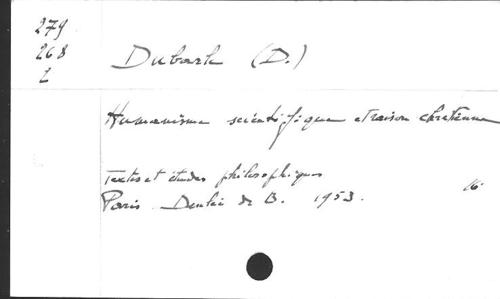 279
268
2
Dubarle (D.)
Humanisme scientifique et raison chrétienne
Textes et études philosophiques
Paris. Desclée de B. 1953. 16°